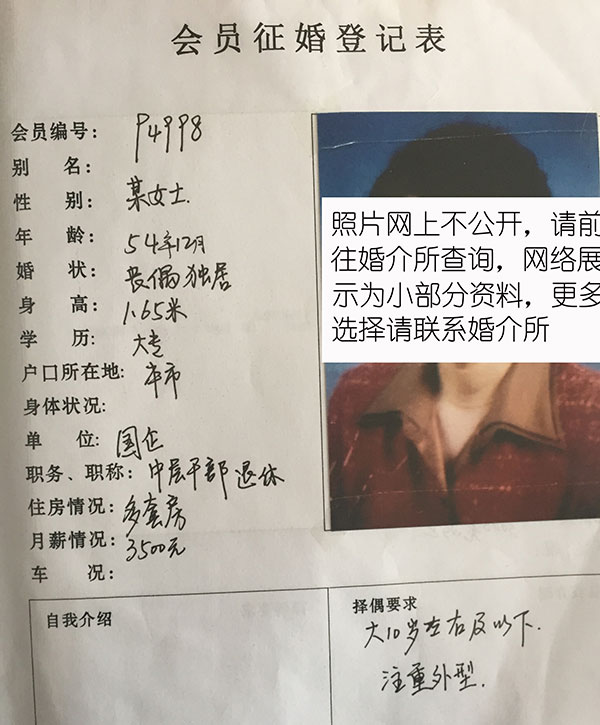 会员征婚登记表
会员编号： P4998
别 名：
性 别： 某女士.
年 龄： 54年12月
婚 状： 丧偶独居
身 高： 1.65米
学 历： 大专
户口所在地： 本市
身体状况：
单 位： 国企
职务、职称： 中层干部 退休
住房情况： 多套房
月薪情况： 3500元
车 况：
照片网上不公开，请前
往婚介所查询，网络展
示为小部分资料，更多
选择请联系婚介所
自我介绍
择偶要求
大10岁左右及以下.
注重外型.